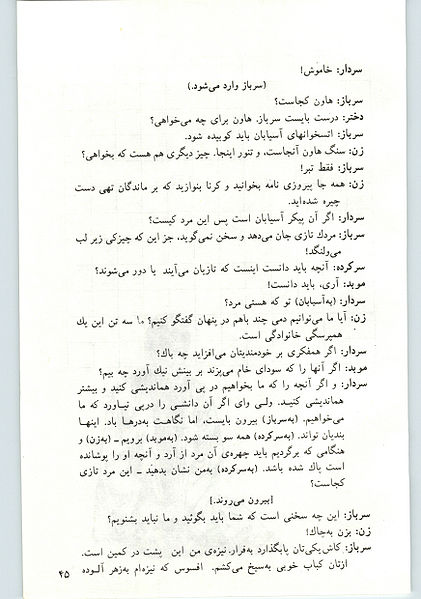 سردار: خاموش!
(سرباز وارد می‌شود.)
سرباز: هاون کجاست؟
دختر: درست بایست سرباز. هاون برای چه می‌خواهی؟
سرباز: استخوانهای آسیابان باید کوبیده شود.
زن: سنگ هاون آنجاست، و تنور اینجا. چیز دیگری هم هست که بخواهی؟
سرباز: فقط تبر!
زن: همه جا پیروزی نامه بخوانید و کرنا بنوازید که بر ماندگان تهی دست
چیره شده‌اید.
سردار: اگر آن پیکر آسیابان است پس این مرد کیست؟
سرباز: مردك تازی جان می‌دهد و سخن نمی‌گوید، جز این که چیزکی زیر لب
می‌ولنگد!
سرکرده: آنچه باید دانست اینست که تازیان می‌آیند یا دور می‌شوند؟
موبد: آری، باید دانست!
سردار: (به‌آسیابان) تو که هستی مرد؟
زن: آیا ما می‌توانیم دمی چند باهم در پنهان گفتگو کنیم؟ ما سه تن این یك
همپرسگی خانوادگی است.
سردار: اگر همفکری بر خودمندیتان می‌افزاید چه باك؟
موبد: اگر آنها را که سودای خام می‌پزند بر بینش نیك آورد چه بیم؟
سردار: و اگر آنچه را که ما بخواهیم در پی آورد هماندیشی کنید و بیشتر
هماندیشی کنیـد. ولـی وای اگر آن دانشـی را درپی نیـاورد که ما
می‌خواهیم. (به‌سرباز) بیرون بایست، اما نگاهـت به‌درهـا باد. اینهـا
بندیان تواند. (به‌سرکرده) همه سو بسته شود. (به‌موبد) برویم ـ (به‌زن) و
هنگامی که برگردیم باید چهره‌ی آن مرد از آرد و آنچه او را پوشانده
است پاك شده باشد. (به‌سرکرده) به‌من نشان بدهید ـ این مرد تازی
کجاست؟
[بیرون می‌روند.]
سرباز: این چه سخنی است که شما باید بگوئید و ما نباید بشنویم؟
زن: بزن به‌چاك!
سرباز: کاش یکی‌تان پابگذارد به‌فرار. نیزه‌ی من این پشت در کمین است.
ازتان کباب خوبی به‌سیخ می‌کشم. افسوس که نیزه‌ام به‌زهر آلـوده
۴۵